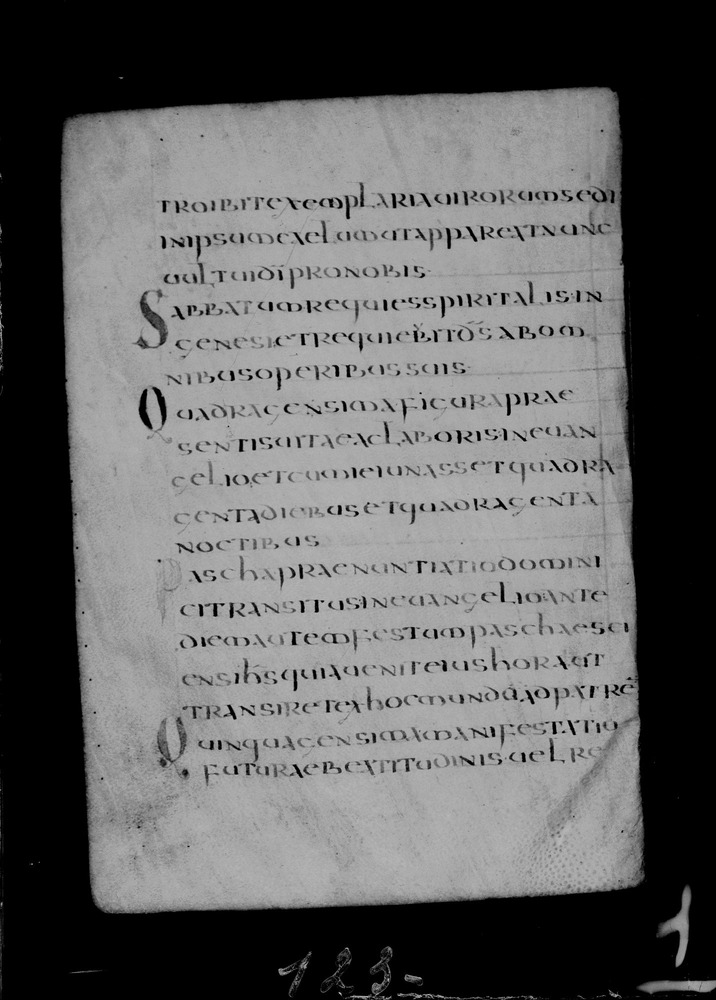 troibit exemplaria uirorum sed i
in ipsum caelum ut appareat nunc
uultui dī pro nobis·
Sabbatum requies spiritalis in
genesi et requiebit d̄s ab om
nibus operibus suis·
Quadragensima figura prae
sentis uitae ac laboris in euan
gelio et cum ieiunasset quadra
genta diebus et quadragenta
noctibus
Pascha praenuntiatio domini
ci transitus in euangelio ante
diem autem festum paschae sci
ens ih̄s quia uenit eius hora ut
transiret ex hoc mundo ad patrē
Quinquagensima manifestatio
futurae beatitudinis uel re
123-
1